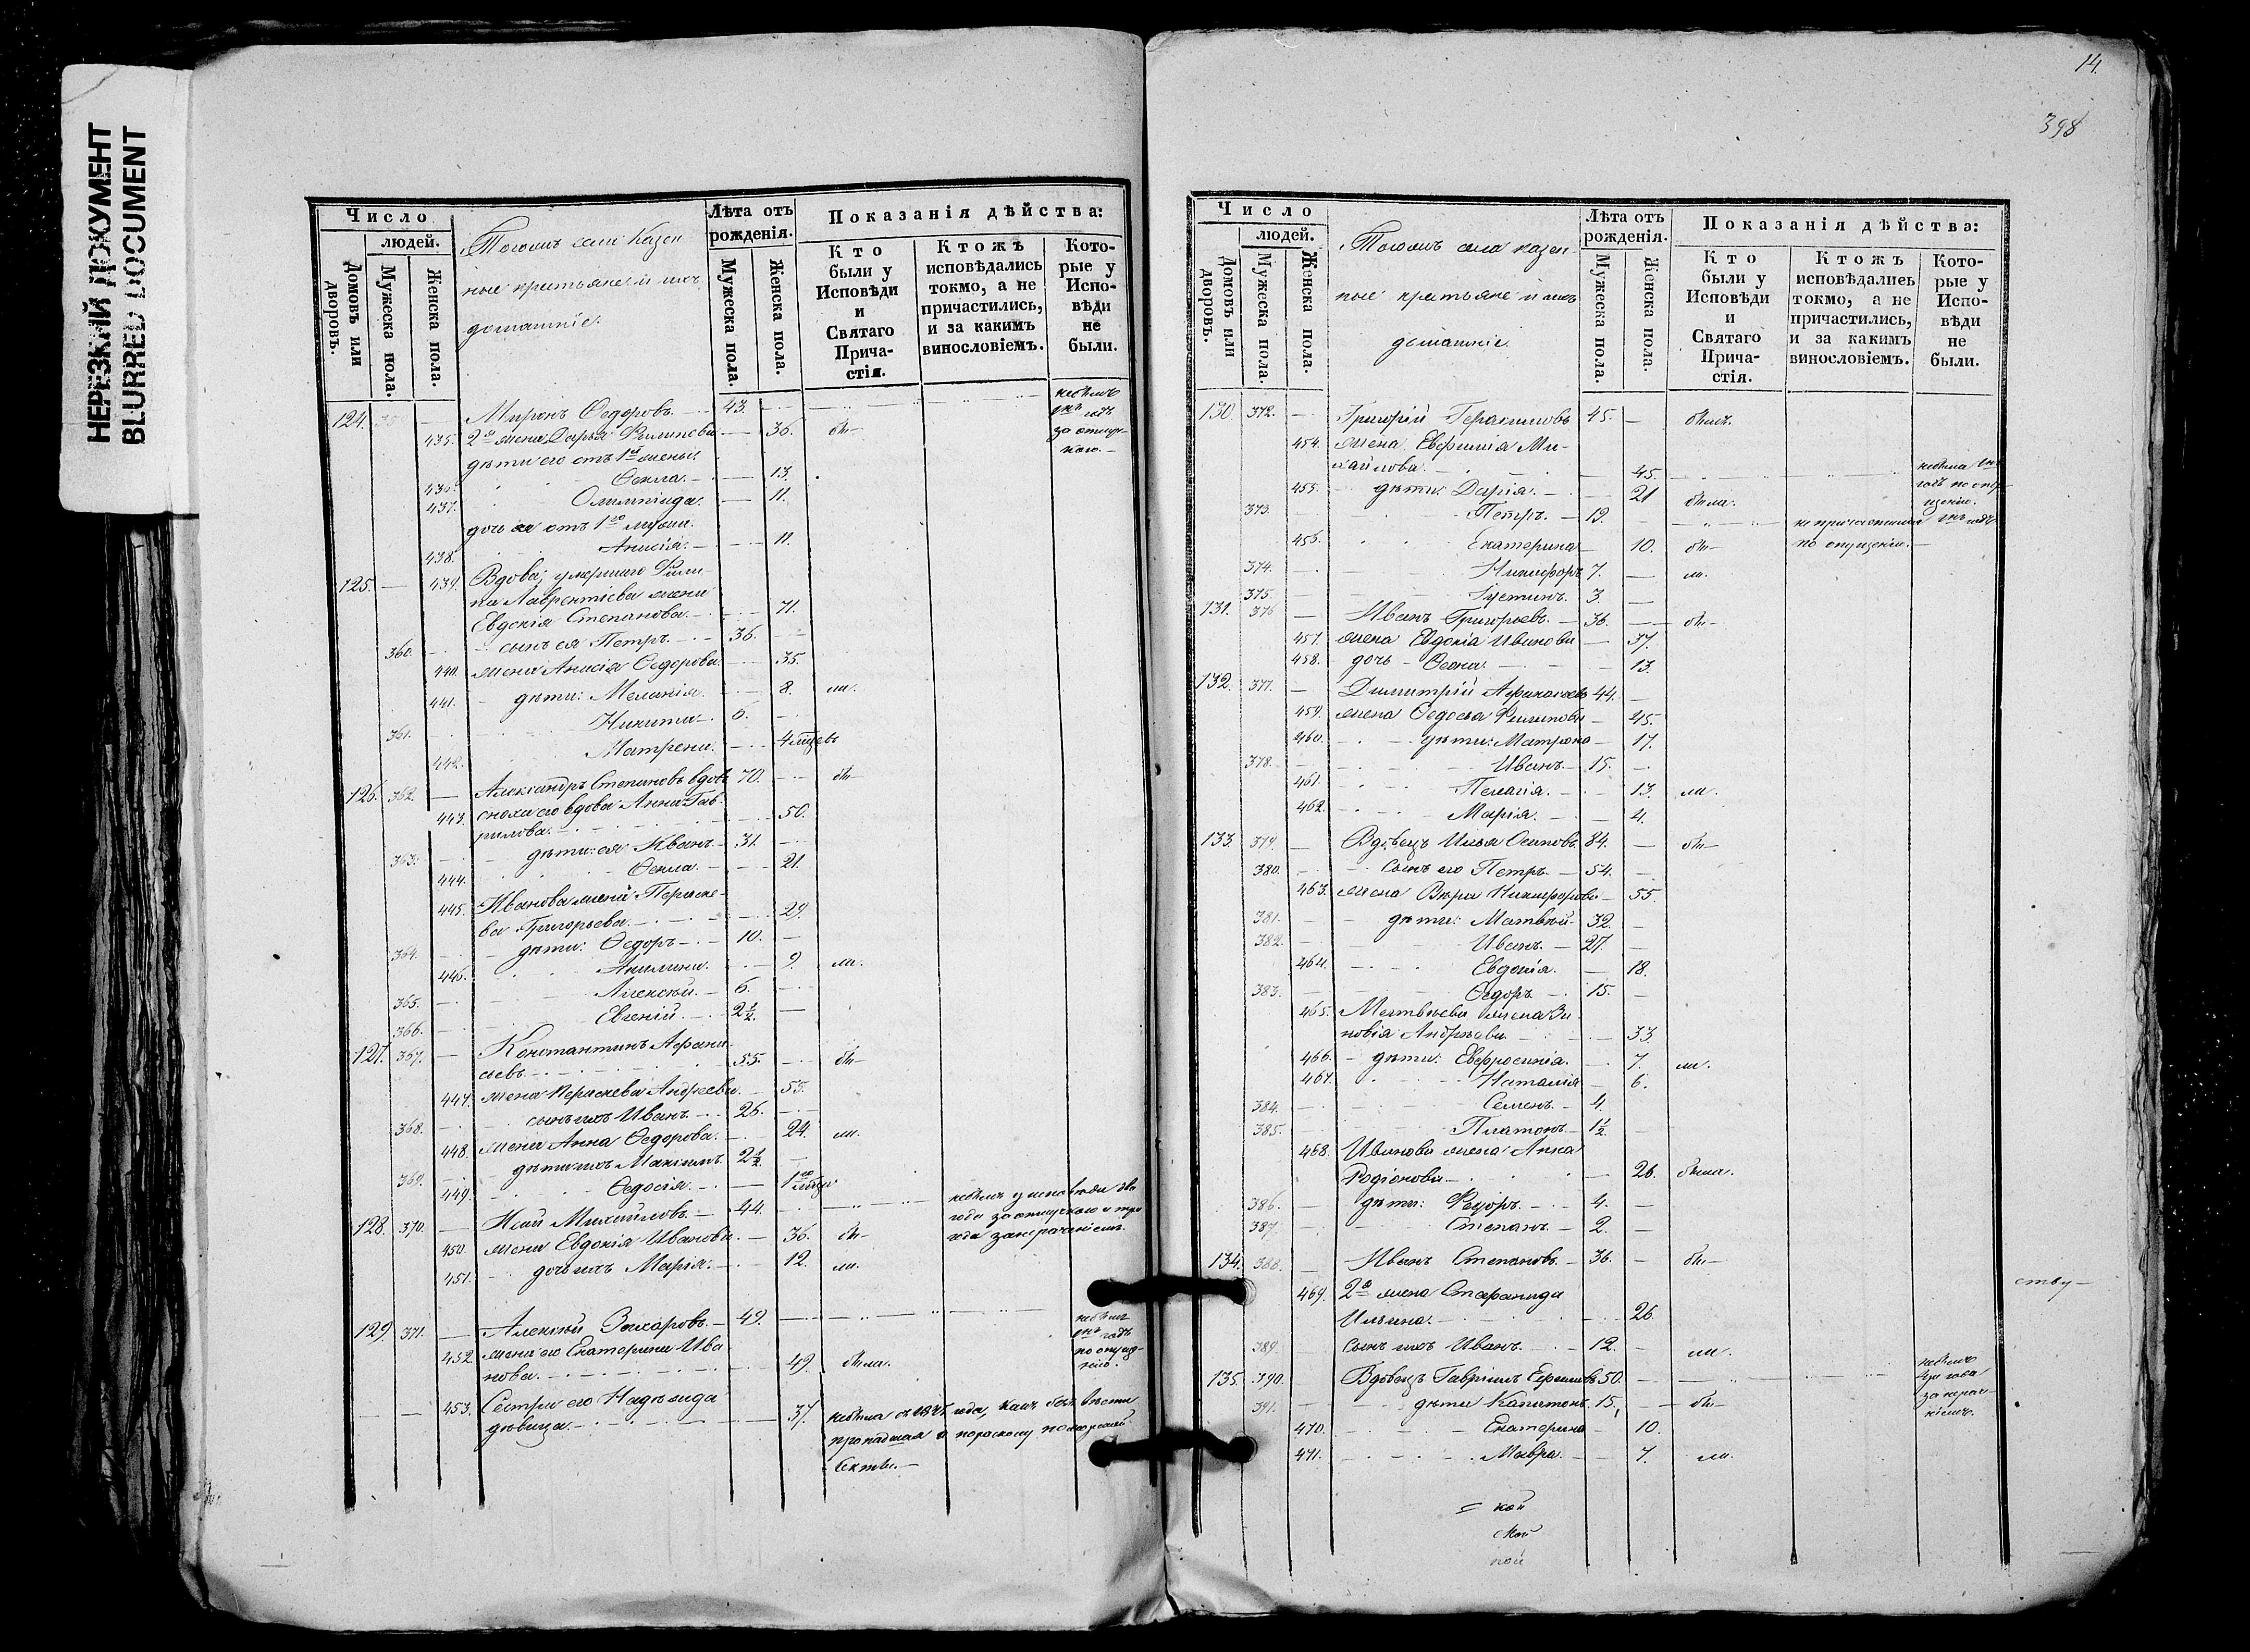 НЕРЕЗКИЙ ДОКУМЕНТ
BLURRED DOCUMENT
Число
людей.
Домовъ или дворовъ.
Мужеска пола.
Женска пола.
Тогожъ села казен
ные кретьяне и ихъ
домашніе.
Лѣта отъ рожденія.
Мужеска пола.
Женска пола.
Показанія дѣйства:
Кто были у Исповѣди и Святаго Прича-стія.
Ктожъ исповѣдались токмо, а не причастились, и за какимъ винословіемъ.
Кото-рые у Испо-вѣди не были.
124. Миронъ Ѳедоровъ. 43.
435. 2ю жена Дарья Филипова 36. бы-
дѣти его отъ 1й жены
436. Ѳекла. 13.
437. Олимпіада. 11.
дочь ея отъ 1го мужа.
438. Анисія. 11.
125. 439. Вдова, умершаго Фили
па Лаврентьева жена
Евдокія Степанова. 71.
360. сынъ ея Петръ. 36.
440. жена Анисія Ѳедорова. 35.
441. дѣти: Меланія. 8. ли.
361. Никита 6.
442. Матрена. 4 мѣсѣцъ
126. 362. Александръ Степановъ вдовъ 70. бы-
443. сноха его вдова Анна Гав-
рилова. 50.
363. дѣти: ея Иванъ 31.
444. Ѳекла. 21.
445. Иванова жена Параске-
ва Григорьева. 29.
364. дѣти: Ѳедоръ 10.
446. Акилина. 9. ли.
365. Алексѣй. 6.
366. Евгеній. 2½
127. 367. Константинъ Афана
сьевъ. 55. бы-
447. жена Параскева Андреева. 53.
368. сынъ ихъ Иванъ. 26.
448. жена Анна Ѳедорова. 24. ли.
369. дѣти ихъ Максимъ 2½
449. Ѳедосія.
128. 370. Михайловъ. 44. небылъ у исповѣди два
года за отлучкою и три
года
450. жена Евдокія Иванова. 36. бы-
451. дочь ихъ Марія. 12. ли.
129. 371. Алексѣй Захаровъ. 49. небылъ
годъ
по опущ-
нію.
452. жена его Екатерина Ива
нова. 49. была.
453. Сестра его Надежда
дѣвица. 37. небыла года, какъ безъ вести
пропавшая
секты.
14.
398
Число
людей.
Домовъ или дворовъ.
Мужеска пола.
Женска пола.
Тогожъ села казен-
ные кретьяне и ихъ
домашніе.
Лѣта отъ рожденія.
Мужеска пола.
Женска пола.
Показанія дѣйства:
Кто были у Исповѣди и Святаго Прича-стія.
Ктожъ исповѣдались токмо, а не причастились, и за какимъ винословіемъ.
Кото-рые у Испо-вѣди не были.
130. 372. Григорій Герасимовъ 45. былъ.
454. жена Евфимія Ми-
хайлова. 45. небыла
годъ по опу-
щенію.
455. дѣти: Дарія. 21 была.
373. Петръ. 19. не причастился годъ
по опущенію.
456. Екатерина 10. бы-
374. Никифоръ 7. ли.
375. Іустинъ. 3.
131. 376 Иванъ Григорьевъ. 36. бы-
457. жена Евдокіа Иванова 37.
458. дочь Ѳекла. 13.
132. 377. Димитрій Афанасьевъ 44.
459. жена Ѳедосья Филипова 45.
460. дѣти: Матрона 17.
378. Иванъ. 15.
461. Пелагія. 13. ли.
462. Марія. 4.
133. 379. Вдовецъ Илья Осиповъ 84. бы-
380. сынъ его Петръ. 54.
463. жена Вѣра Никифорова 55.
381. дѣти: Матвѣй 32.
382. Иванъ. 27.
464. Евдокія. 18.
383. Ѳедоръ 15.
465. Матвѣева жена Зи-
новія Андрѣева. 33.
466. дѣти: Евфросинія. 7. ли.
467. Наталія 6.
384. Семенъ. 4.
385. Платонъ. 1½
468. Иванова жена Анна
Родіонова 26. была.
386. дѣти: Ѳедоръ. 4.
387. Степанъ. 2.
134. 388. Иванъ Степановъ. 36. бы-
469. 2я жена Стефанида
Ильина. 26.
389. сынъ ихъ Иванъ. 12. ли.
135. 390. Вдовецъ Гавріилъ Ефимовъ 50. небылъ
три года
391. дѣти Капитонъ. 15. бы-
470. Екатерина 10.
471. Мавра. 7. ли.
ству-
кой
ской
ной